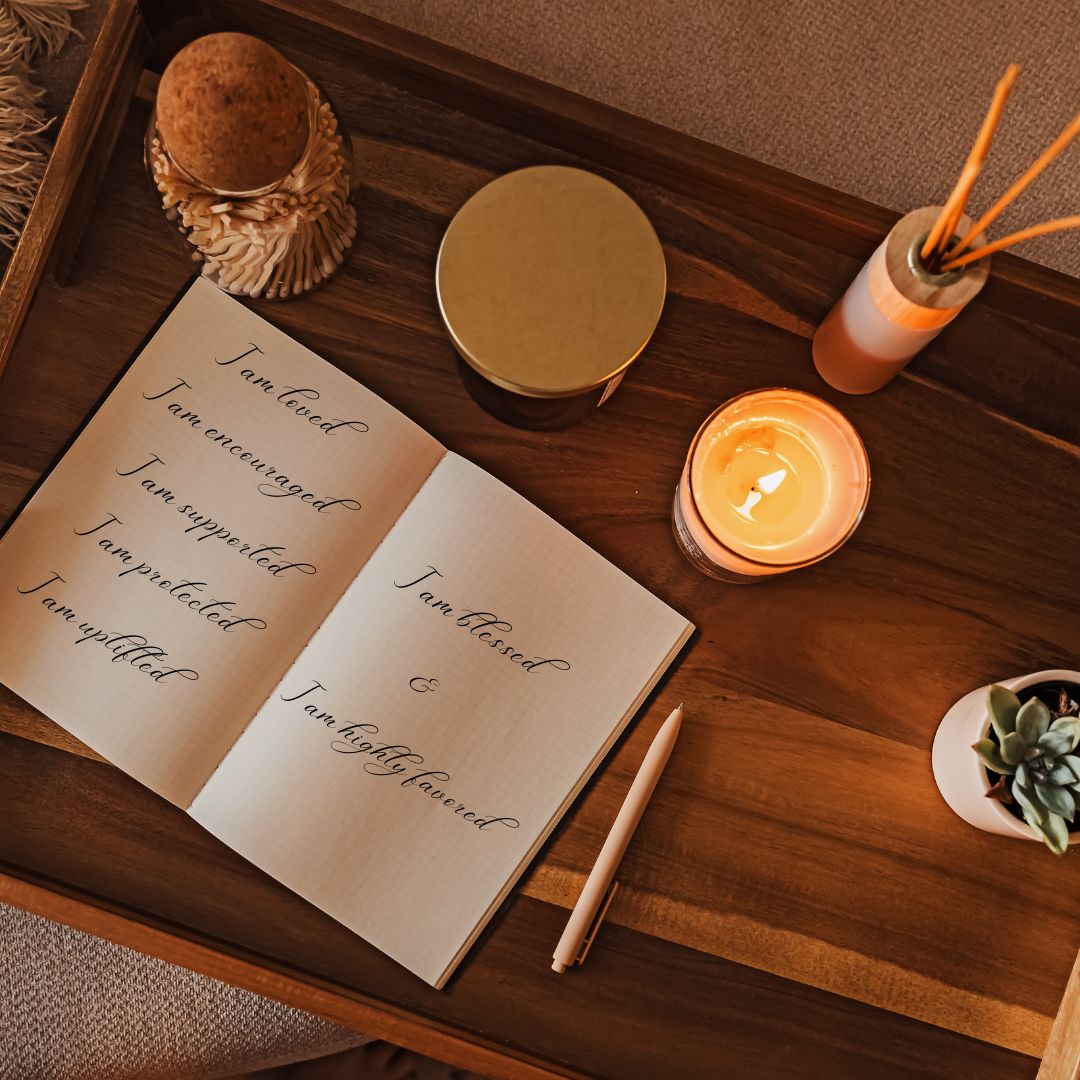 I am loved
I am encouraged
I am supported
I am protected
I am uplifted
I am blessed
&
I am highly favored